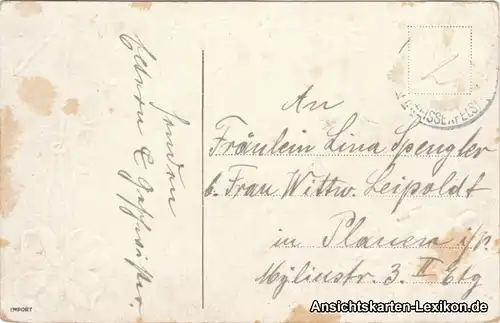 senden
Eltern & Geschwister.
An
Fräulein Lina Spengler
b. Frau Wittw. Leipoldt
in Plauen i/v.
Mylinstr. 3. II Etg
WEISSENFELS
IMPORT
Ansichtskarten-Lexikon.de